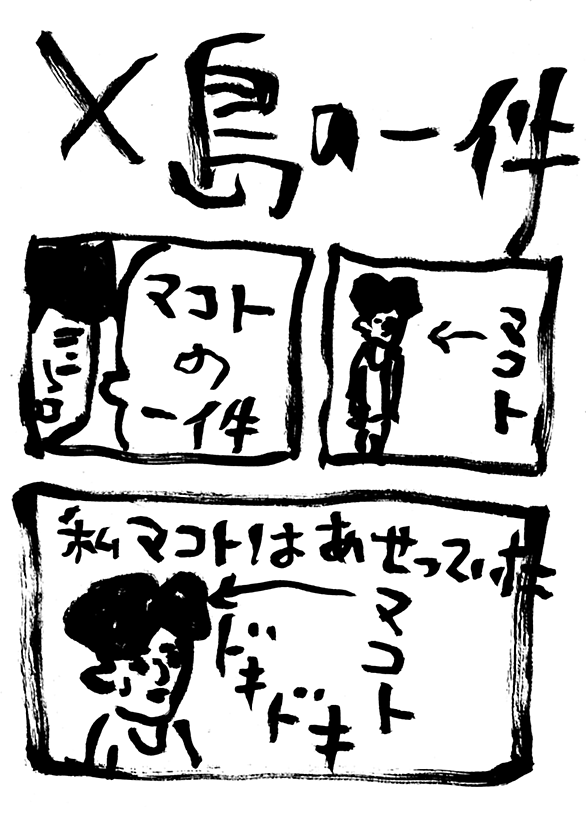 X島の一件
マコト
マコト
の
一件
私マコト!はあせっていた
マコト
ドキドキ